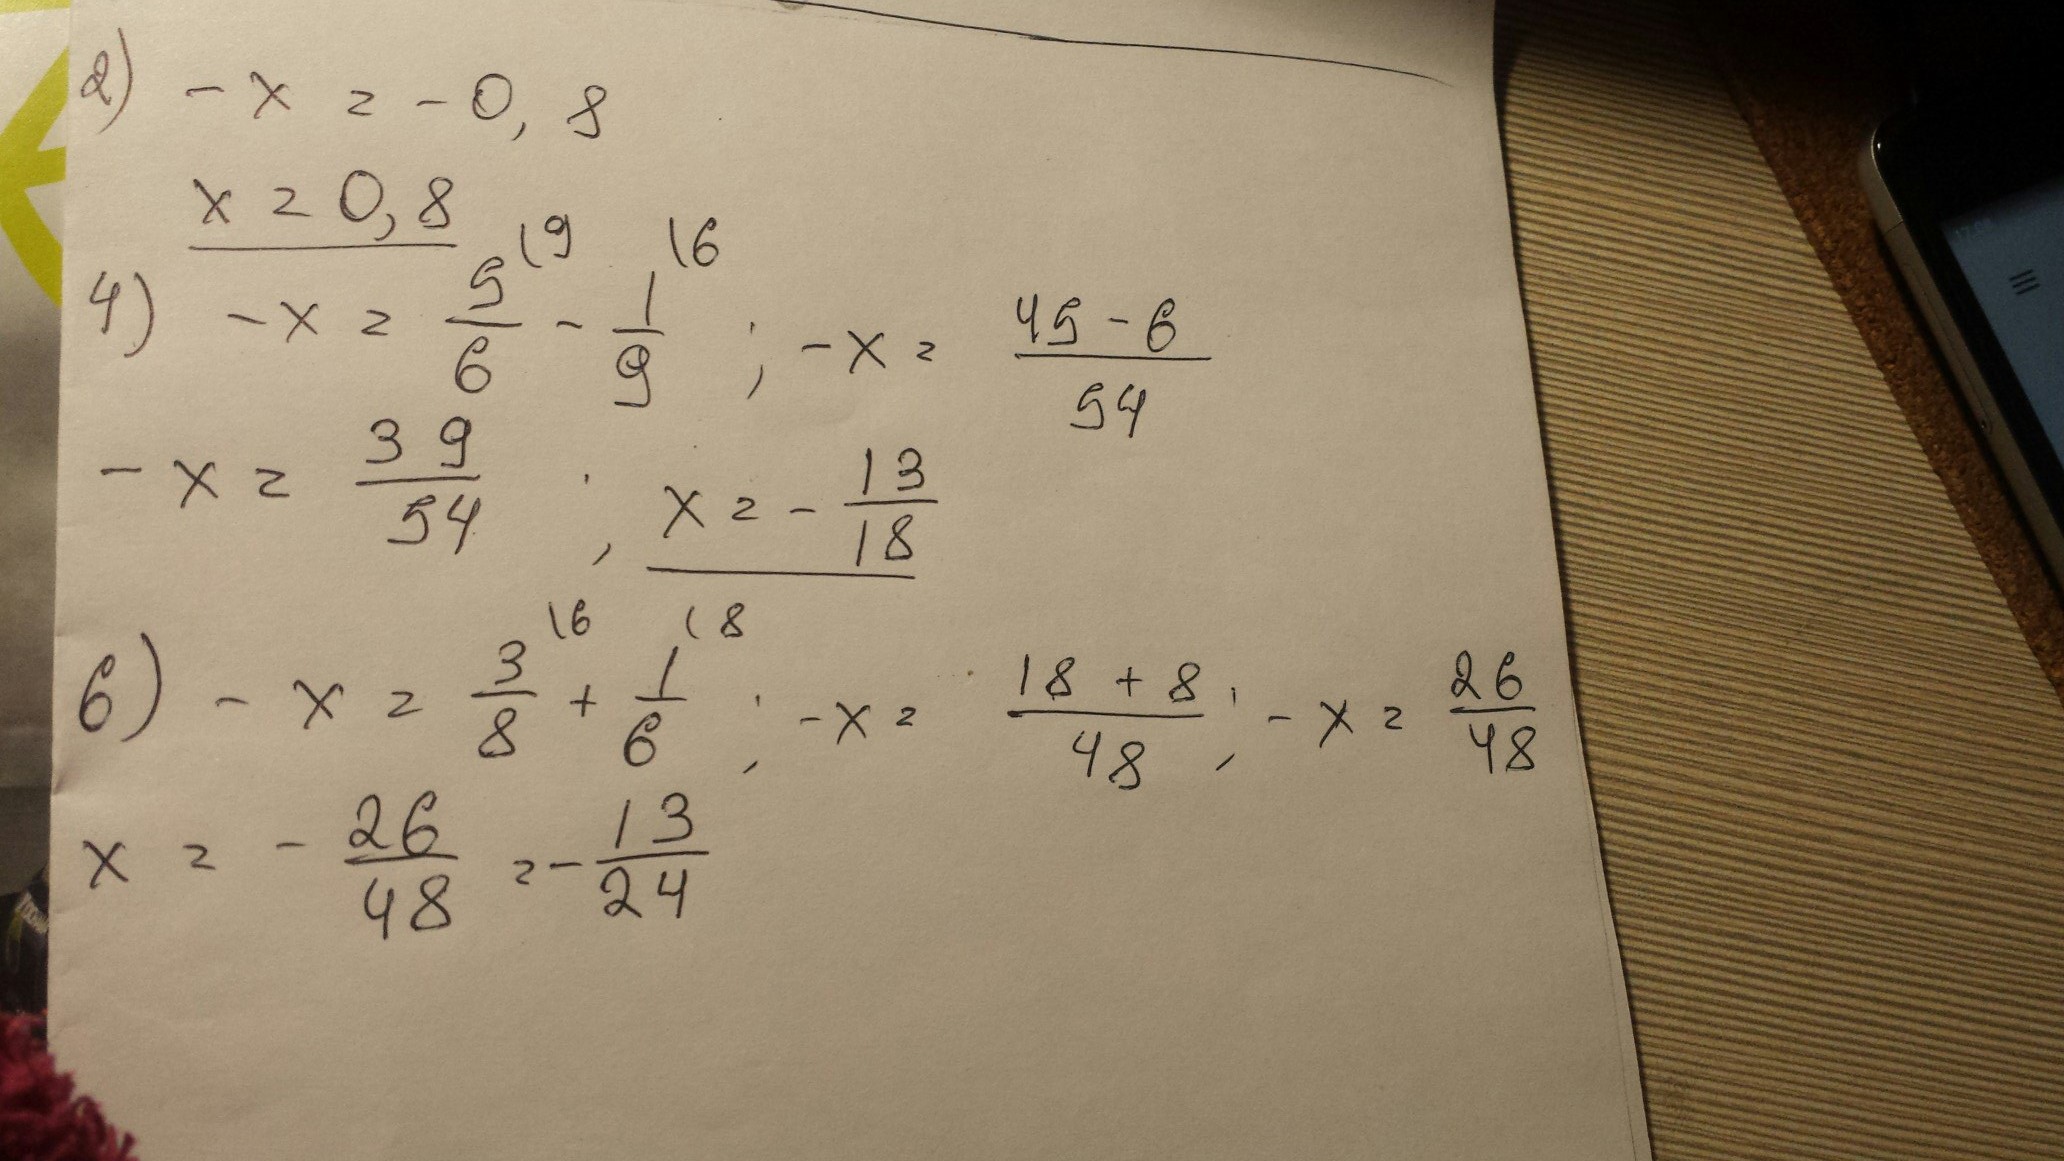 2) -x = -0,8
x = 0,8
4) -x = 5/6 \9 - 1/9 \6 ; -x = 45-6/54
-x = 39/54 ; x = -13/18
6) -x = 3/8 \6 + 1/6 \8 ; -x = 18+8/48 ; -x = 26/48
x = -26/48 = -13/24